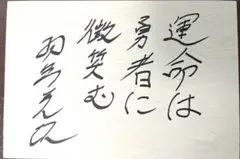 運命は
勇者に
微笑む
羽生善治